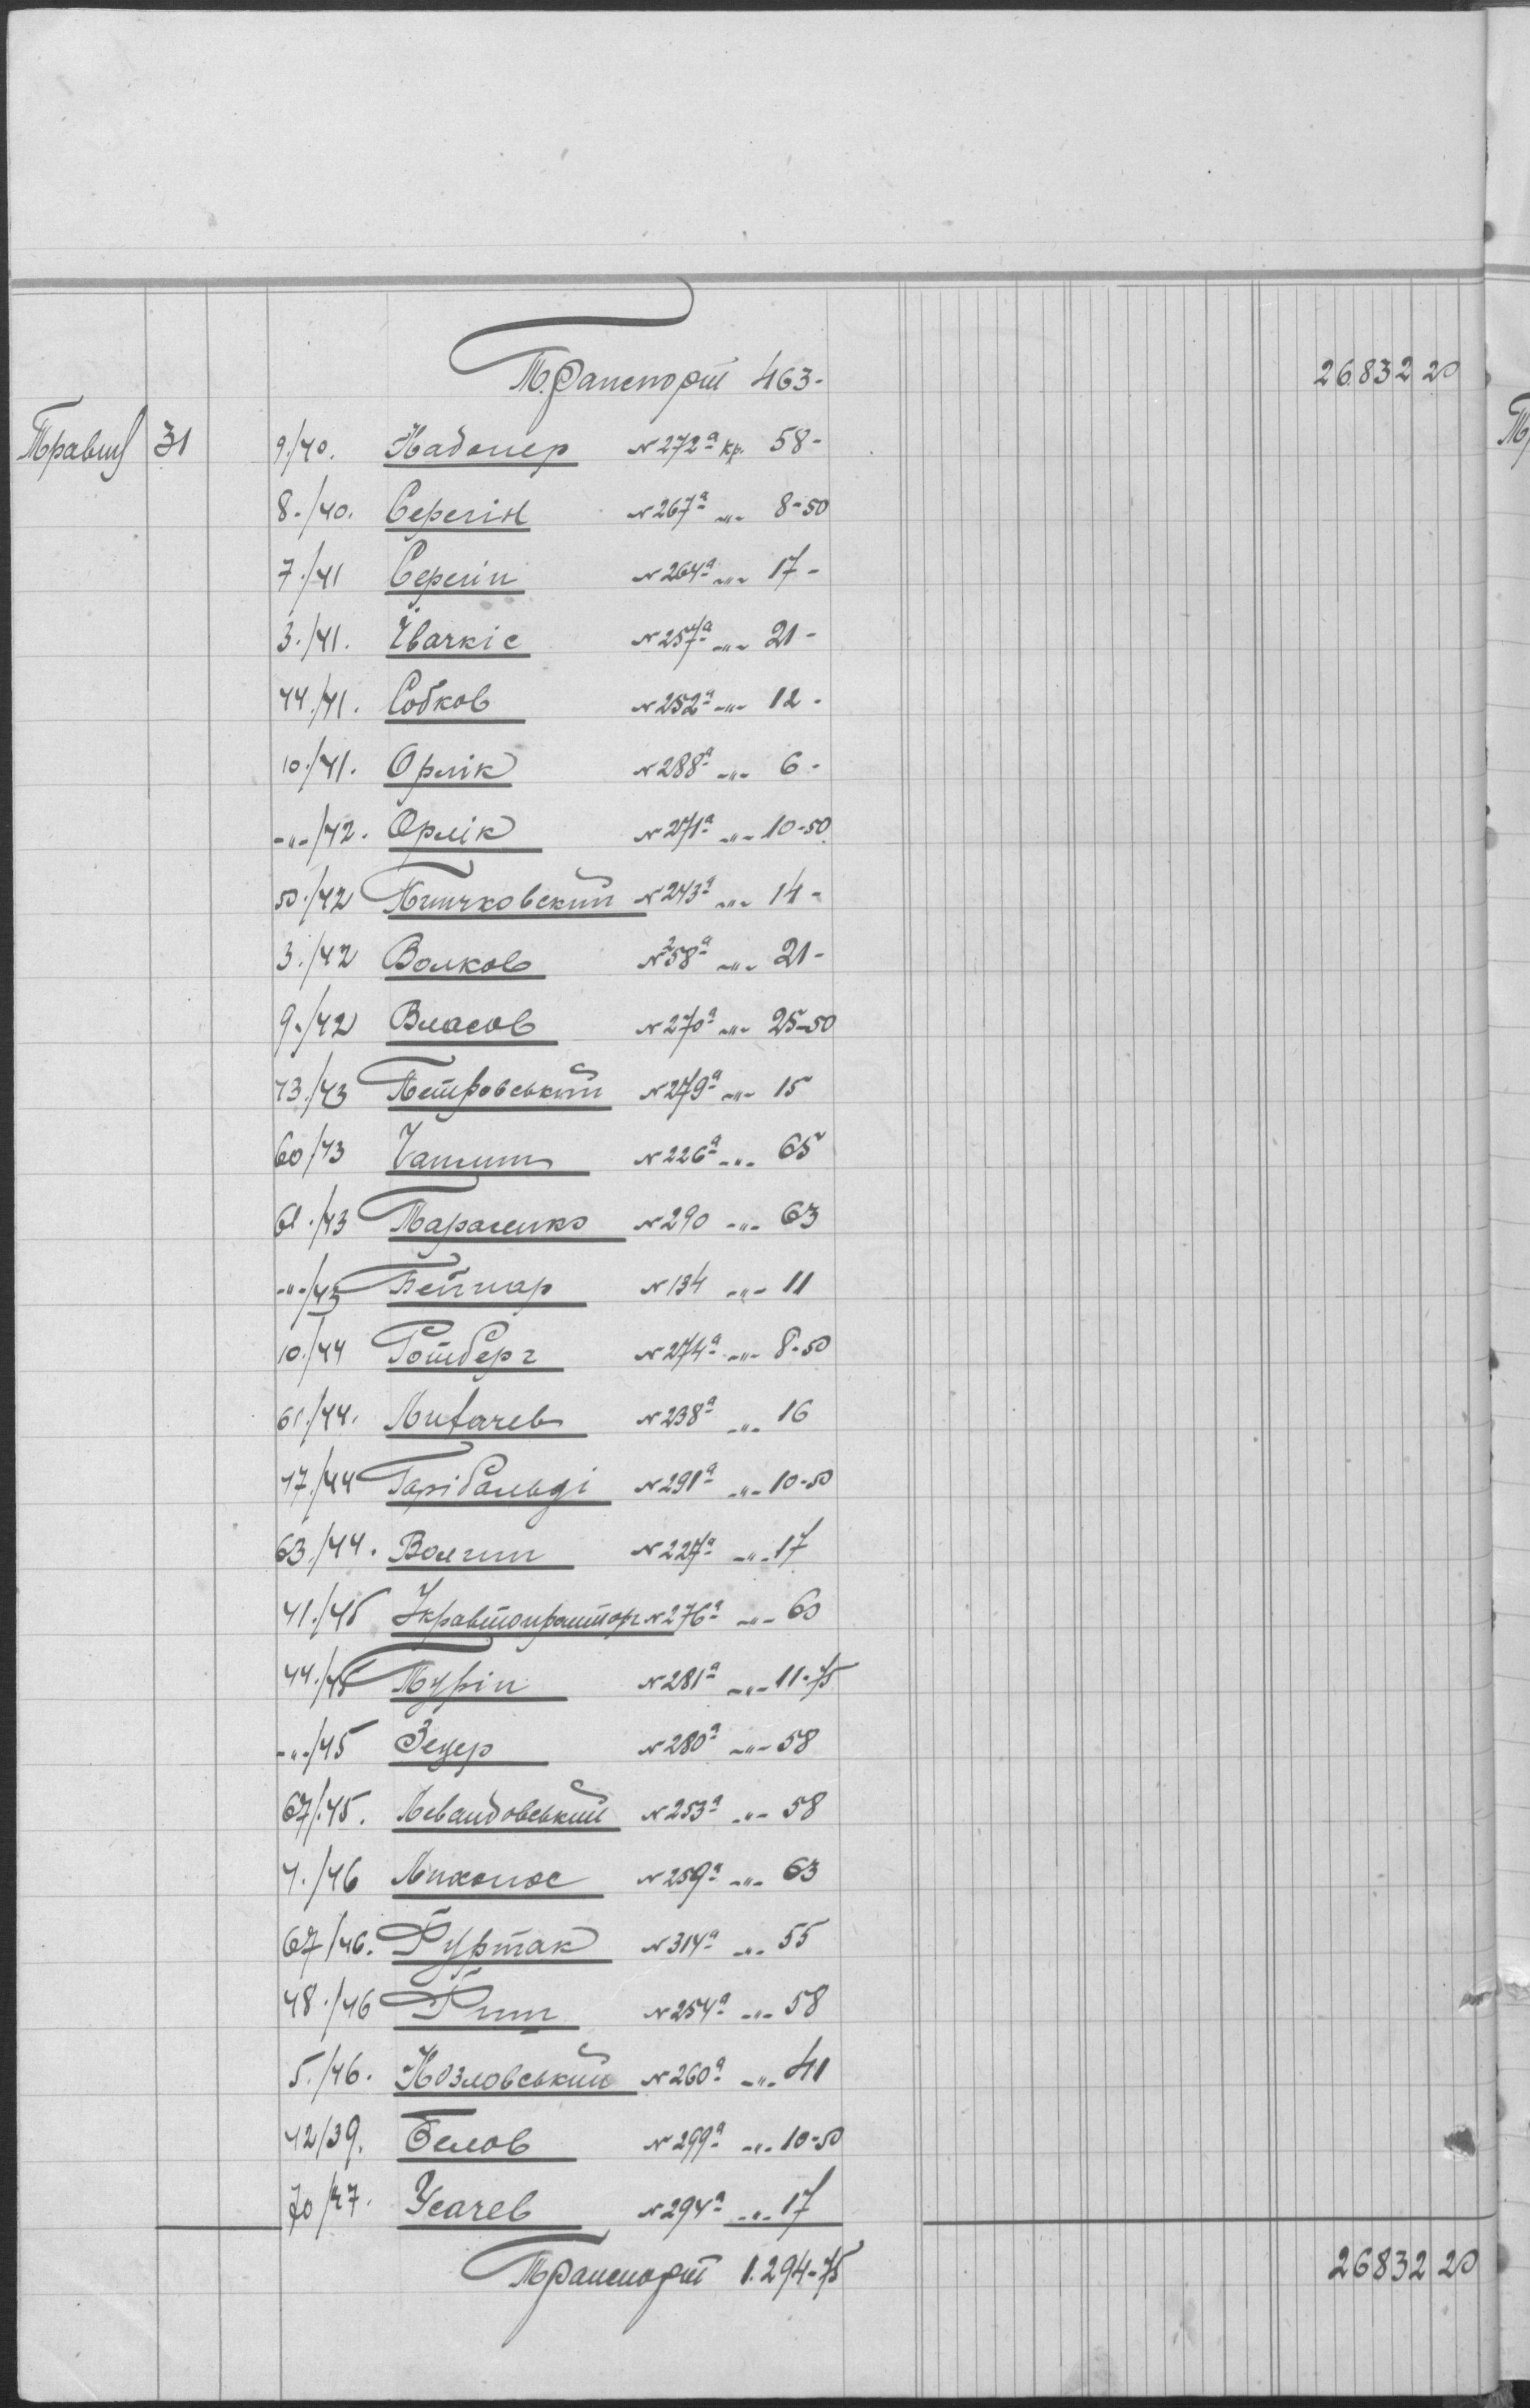 Транспорт 463- 26832 20
Травня 31 9./40. Кадопер № 272а кр. 58-
8./40. Серегін № 267а -"- 8-50
7./41 Серегін № 264а -"- 17-
3./41. № 257а -"- 21-
44./41. Собков № 252а -"- 12-
10./41. Орлік № 288а -"- 6-
-"-/42. Орлік № 271а -"- 10-50
50./42 № 243а -"- 14-
3./42 Волков № 258а -"- 21-
9./42 Власов № 270а -"- 25-50
43./43 Петровський № 279а -"- 15
60/43 № 226а -"- 65
61./43 Тараненко № 290 -"- 63
-"-/43 № 134 -"- 11
10./44 Готберг № 274а -"- 8-50
61./44. Лихачев № 238а -"- 16
47./44 Гарібальді № 291а -"- 10-50
63./44. Волгин № 227а -"- 17
41./45 Укравтопромторг № 276а -"- 60
44./45 Турін № 281а -"- 11-75
-"-/45 Зецер № 280а -"- 58
67/.45. Левандовський № 253а -"- 58
4./46 № 259а -"- 63
67/46. Гуртак № 314а -"- 55
48./46 № 254а -"- 58
5./46. Козловський № 260а -"- 41
42/39. Белов № 299а -"- 10-50
70/47. Усачев № 294а -"- 17
Транспорт 1.294-75 26832 20